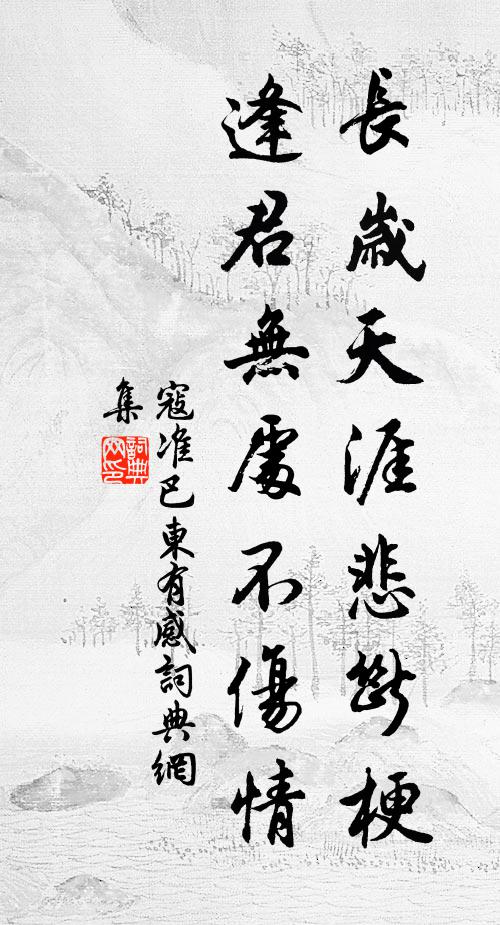 長歲天涯悲斷梗
逢君無處不傷情
寇准巴東有感詞典網
集
詞典网印